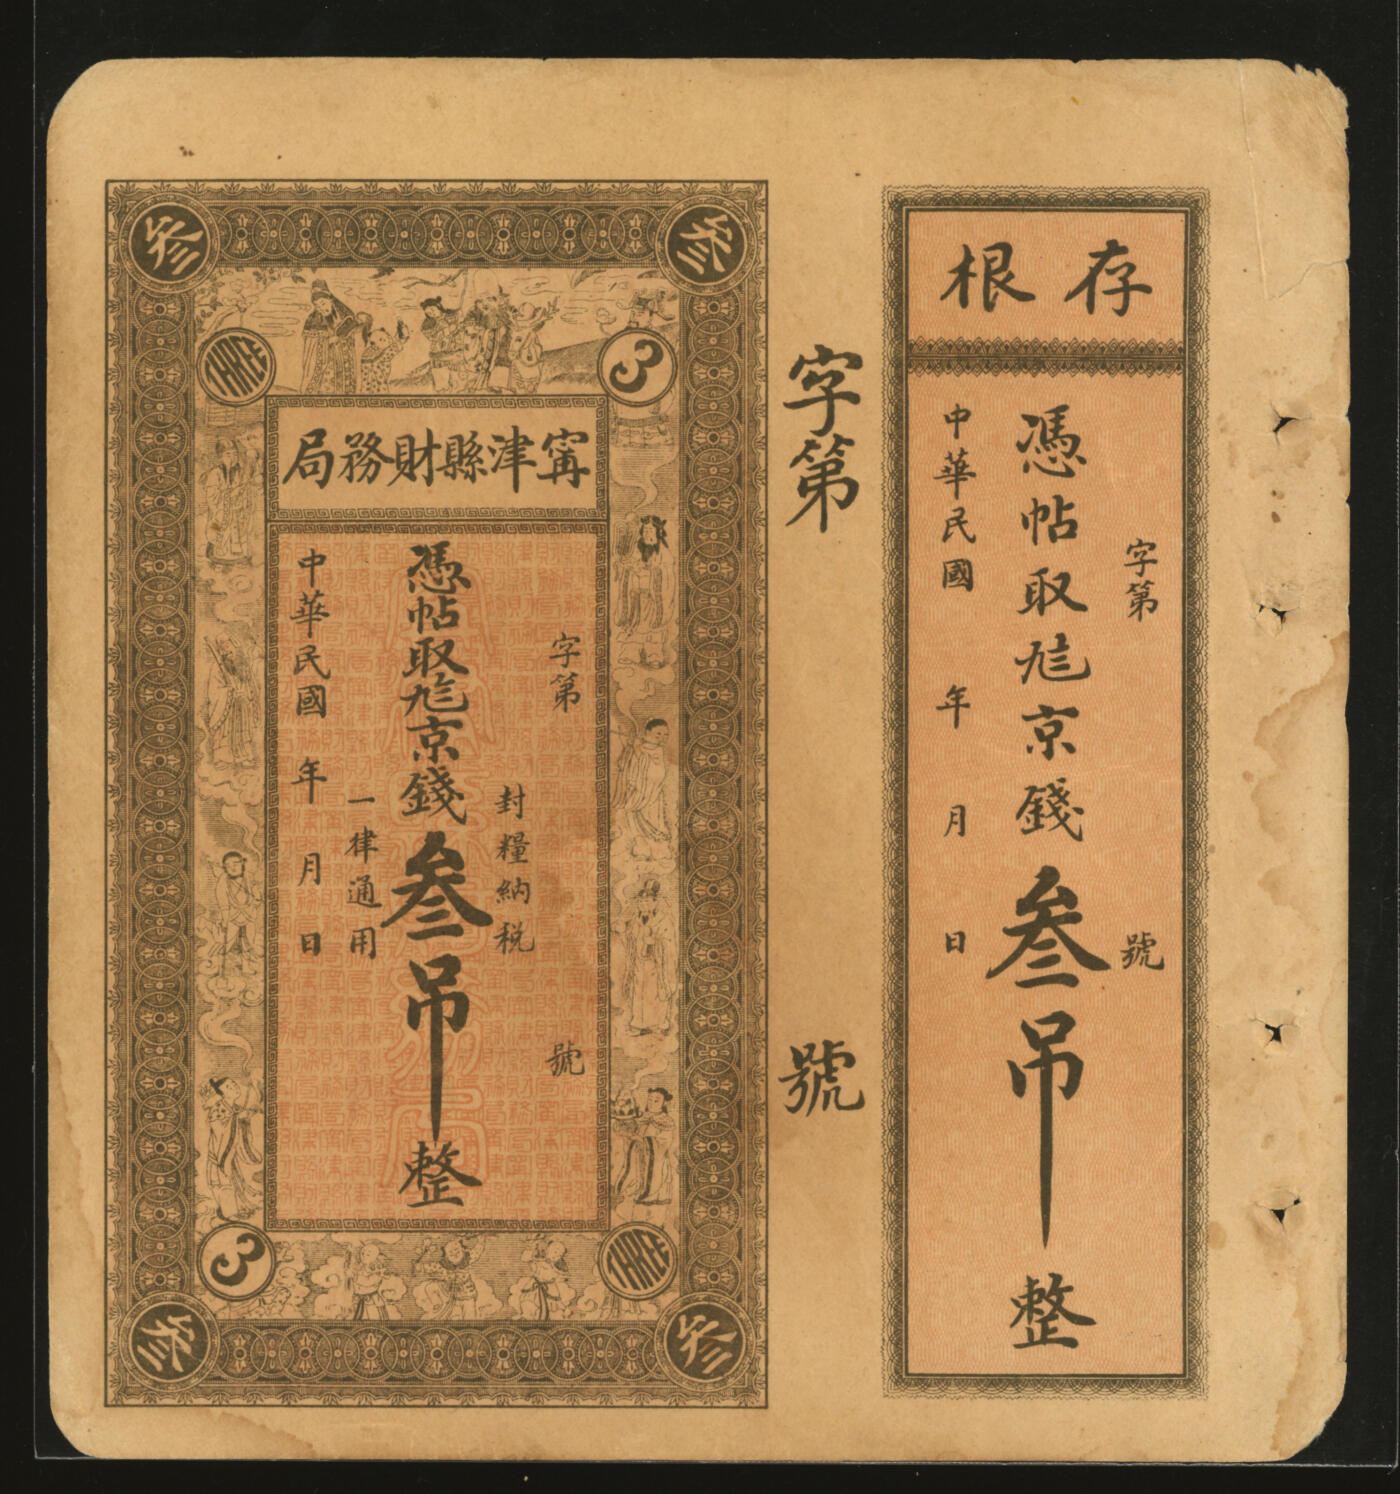 存根
字第 號
憑帖取 京錢叁吊整
中華民國 年 月 日
字第 號
叁
叁
THREE
3
寗津縣財務局
字第 號
封糧納税
憑帖取 京錢叁吊整
一律通用
中華民國 年 月 日
3
THREE
叁
叁